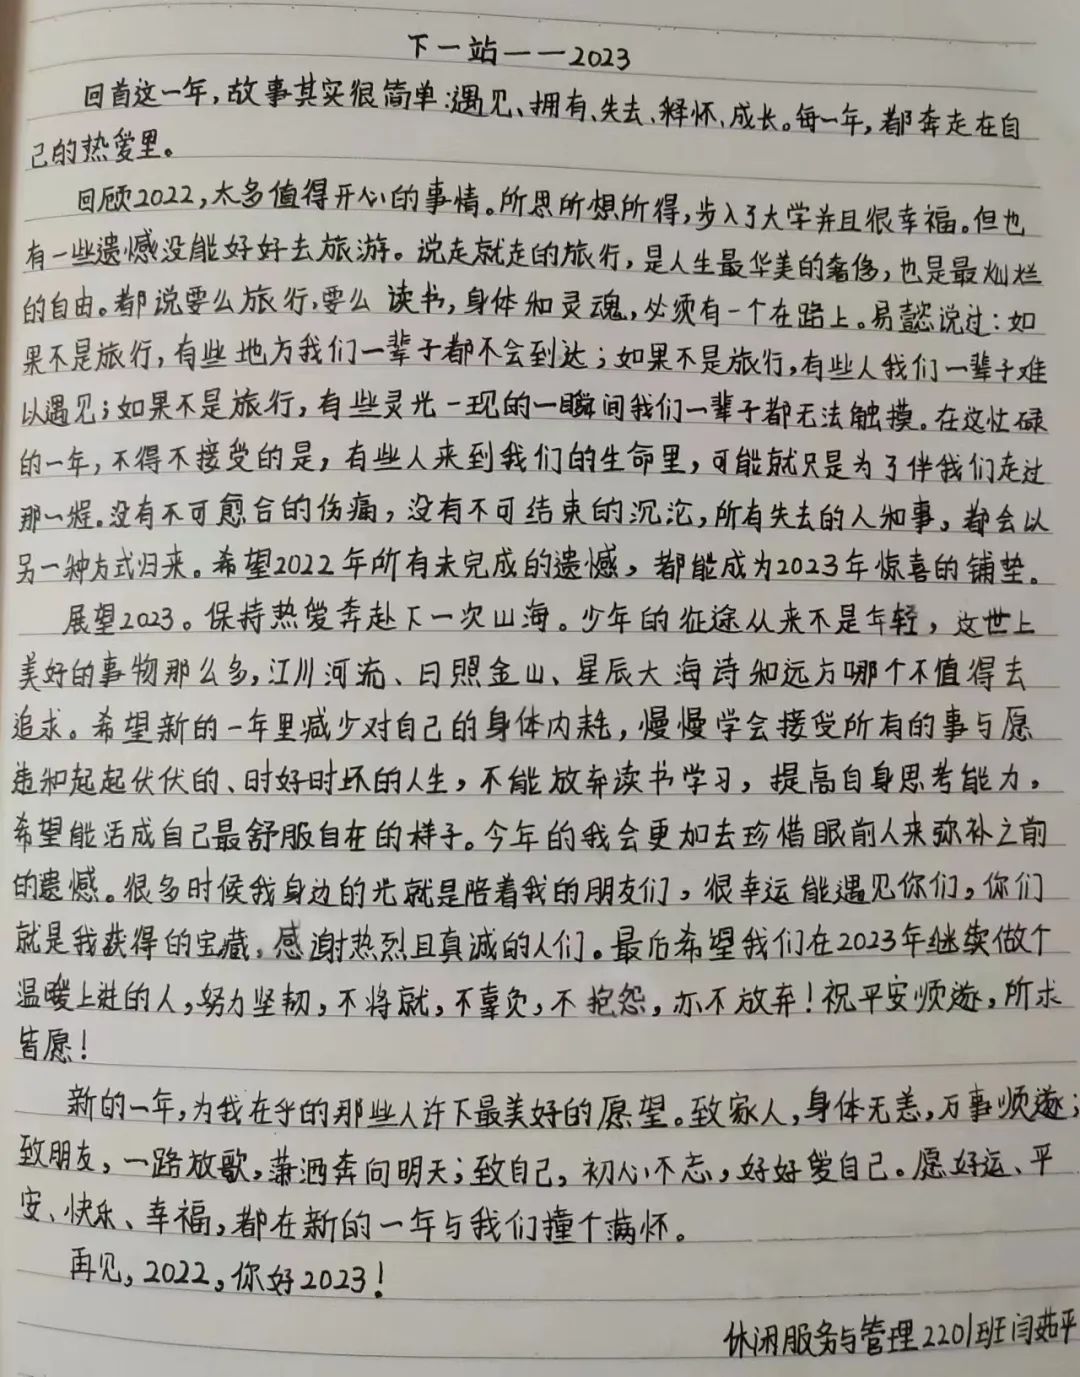 下一站——2023
回首这一年,故事其实很简单:遇见、拥有、失去、释怀、成长。每一年,都奔走在自
己的热爱里。
回顾2022,太多值得开心的事情。所思所想所得,步入了大学并且很幸福。但也
有一些遗憾没能好好去旅游。说走就走的旅行,是人生最华美的奢侈,也是最灿烂
的自由。都说要么旅行,要么读书,身体和灵魂,必须有一个在路上。易懿说过:如
果不是旅行,有些地方我们一辈子都不会到达;如果不是旅行,有些人我们一辈子难
以遇见;如果不是旅行,有些灵光一现的一瞬间我们一辈子都无法触摸。在这忙碌
的一年,不得不接受的是,有些人来到我们的生命里,可能就只是为了伴我们走过
那一程。没有不可愈合的伤痛,没有不可结束的沉沦,所有失去的人和事,都会以
另一种方式归来。希望2022年所有未完成的遗憾,都能成为2023年惊喜的铺垫。
展望2023。保持热爱奔赴下一次山海。少年的征途从来不是年轻,这世上
美好的事物那么多,江川河流、日照金山、星辰大海诗和远方哪个不值得去
追求。希望新的一年里减少对自己的身体内耗,慢慢学会接受所有的事与愿
违和起起伏伏的、时好时坏的人生,不能放弃读书学习,提高自身思考能力,
希望能活成自己最舒服自在的样子。今年的我会更加去珍惜眼前人来弥补之前
的遗憾。很多时候我身边的光就是陪着我的朋友们,很幸运能遇见你们,你们
就是我获得的宝藏,感谢热烈且真诚的人们。最后希望我们在2023年继续做个
温暖上进的人,努力坚韧,不将就,不辜负,不抱怨,亦不放弃!祝平安顺遂,所求
皆愿!
新的一年,为我在乎的那些人许下最美好的愿望。致家人,身体无恙,万事顺遂;
致朋友,一路放歌,潇洒奔向明天;致自己,初心不忘,好好爱自己。愿好运、平
安、快乐、幸福,都在新的一年与我们撞个满怀。
再见,2022,你好2023!
休闲服务与管理2201班闫茹平